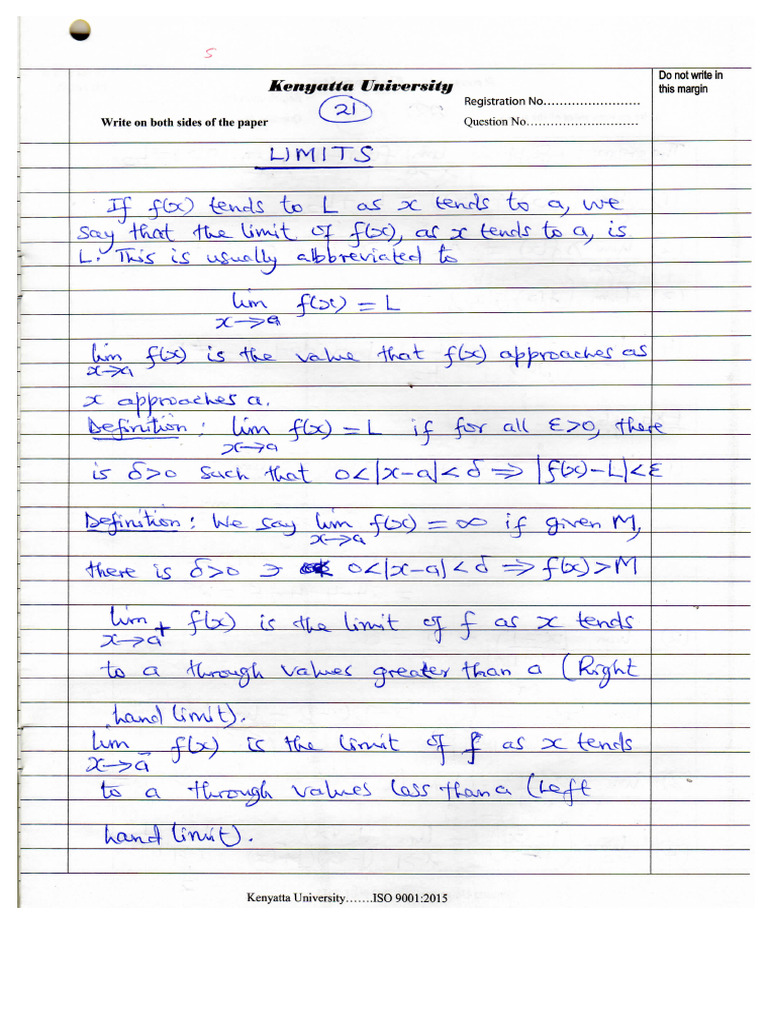 5
Kenyatta University
Do not write in
this margin
21
Registration No……………………
Write on both sides of the paper
Question No……………………….
LIMITS
If f(x) tends to L as x tends to a, we
say that the limit of f(x), as x tends to a, is
L. This is usually abbreviated to
lim f(x) = L
x→a
lim f(x) is the value that f(x) approaches as
x→a
x approaches a.
Definition: lim f(x) = L if for all ε>0, there
x→a
is δ>0 such that 0<|x-a|<δ ⇒ |f(x)-L|<ε
Definition: We say lim f(x) = ∞ if given M,
x→a
there is δ>0 ∋ 0<|x-a|<δ ⇒ f(x)>M
lim f(x) is the limit of f as x tends
x→a⁺
to a through values greater than a (Right
hand limit).
lim f(x) is the limit of f as x tends
x→a⁻
to a through values less than a (Left
hand limit).
Kenyatta University…….ISO 9001:2015